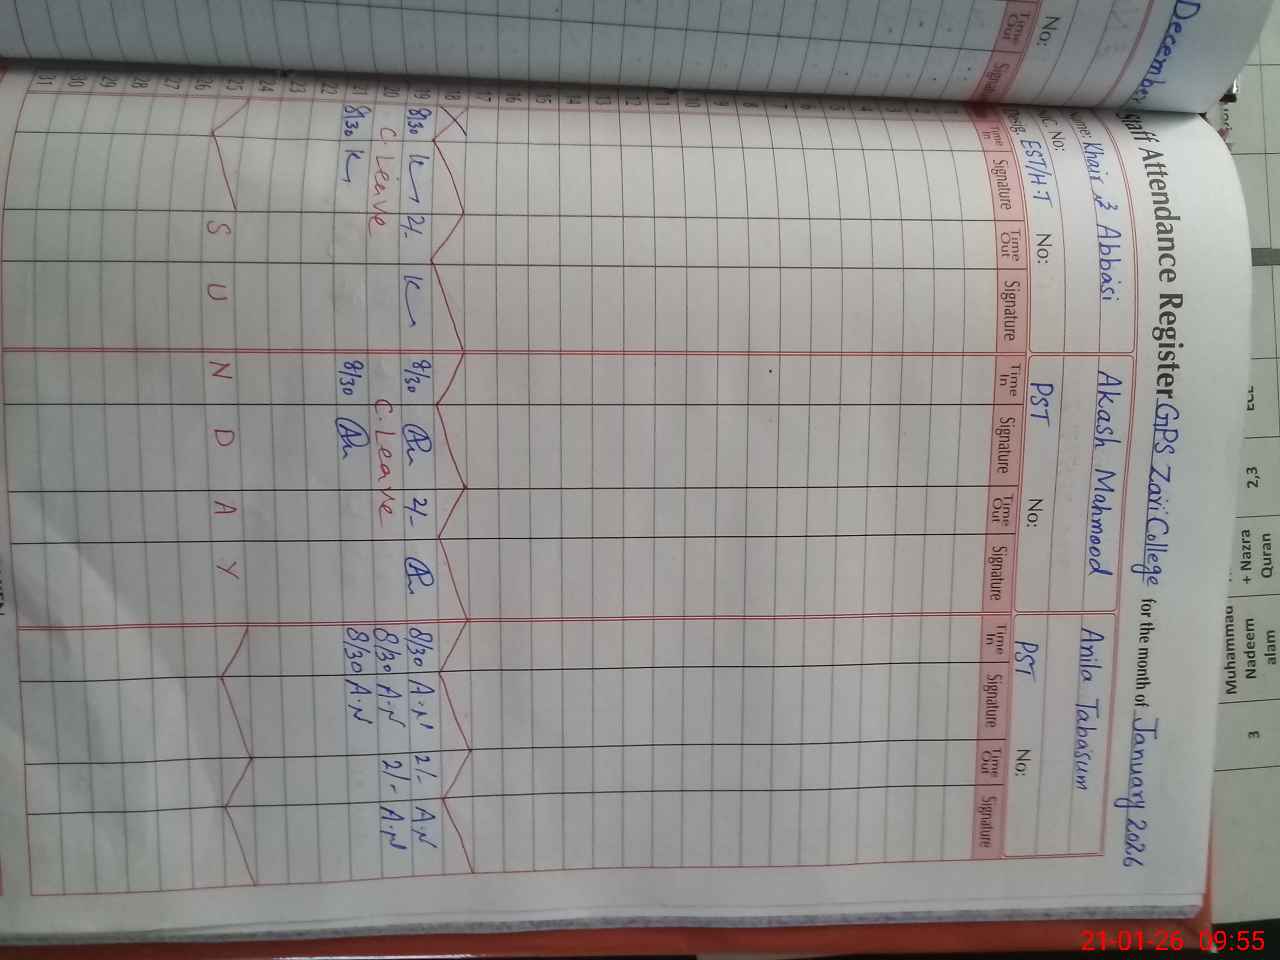 December
No:
Time Out
Staff Attendance Register GPS Zari College for the month of January 2026
Name: Khair Abbasi
Akash Mahmood
Anila Tabasum
N.I.C. No:
Desig. EST/H.T No:
PST No:
PST No:
Time In Signature Time Out Signature Time In Signature Time Out Signature Time In Signature Time Out Signature
1
2
3
4
5
6
7
8
9
10
11
12
13
14
15
16
17
18
19 8/30 2/- 8/30 2/- 8/30 A.N 2/- A.N
20 C. Leave C. Leave 8/30 A.N 2/- A.N
21 8/30 8/30 8/30 A.N
22
23
24
25 S U N D A Y
26
27
28
29
30
31
2,3
Quran
+ Nazra
alam
Nadeem
Muhammad
3
21-01-26 09:55